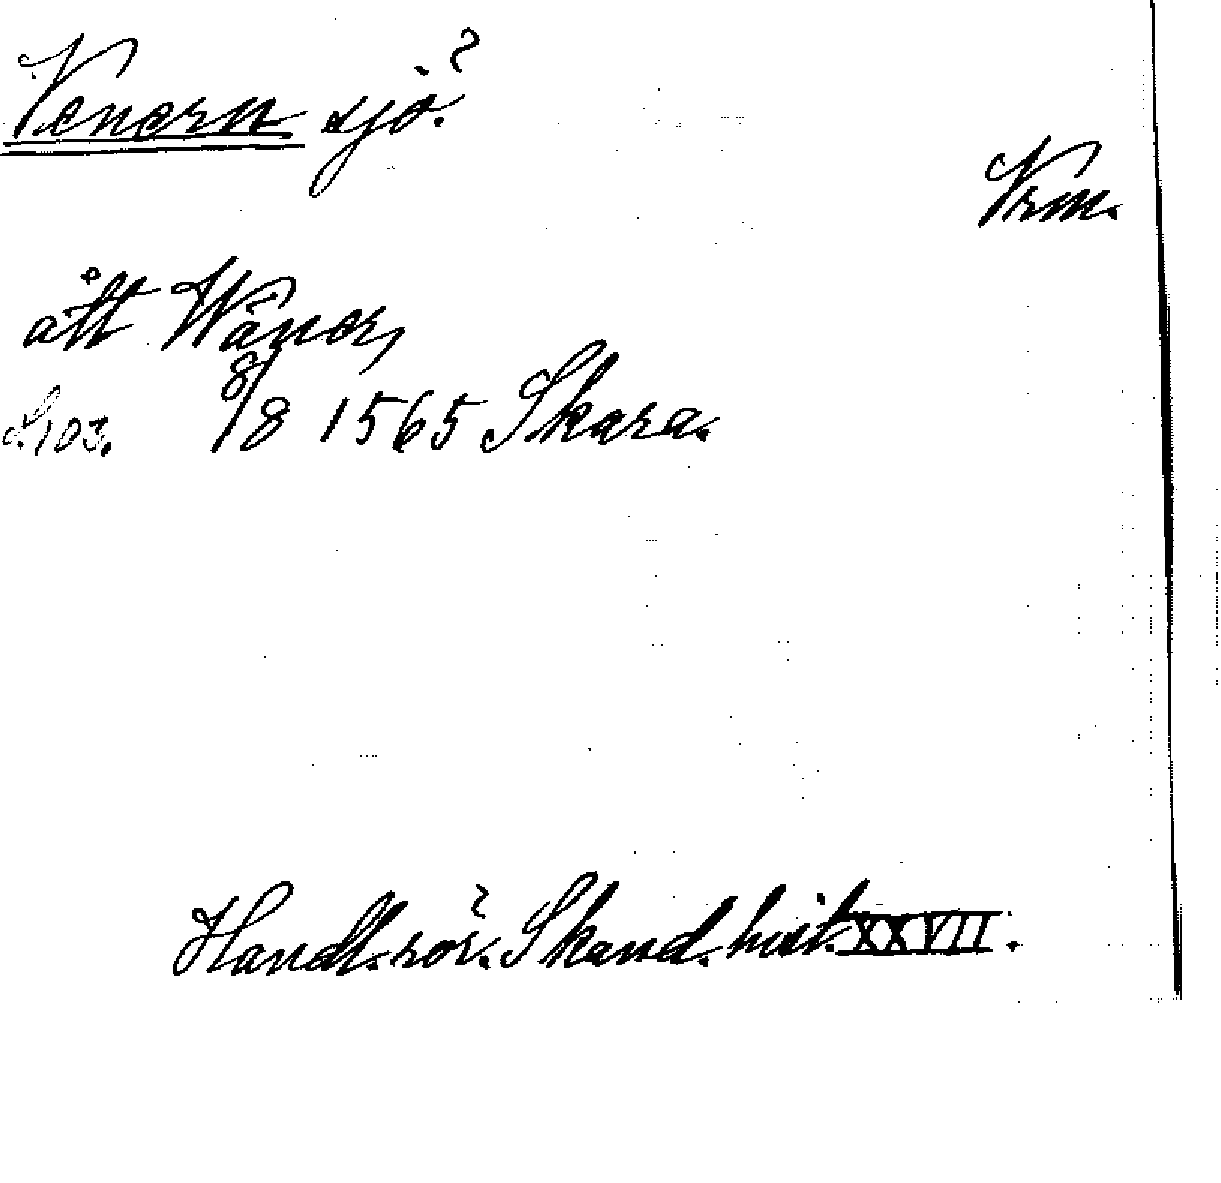 Venern sjö.
Vrm.
ått Wäner,
S. 103. 8/8 1565 Skara.
Handl. rör. Skand. hist. XXVII.